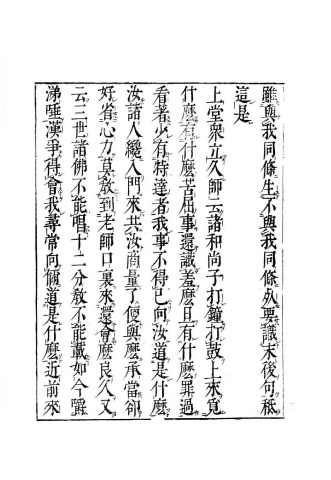 雖與我同條生不與我同條死要識末後句秪
這是
上堂衆立久師云諸和尚子打鐘打鼓上來覓
什麼有什麼苦屈事還識羞麼且有什麼罪過
看著少有特達者我事不得已向汝道是什麼
汝諸人纔入門來共汝商量了便與麼承當卻
好省心力莫教到老師口裏來還會麼良久又
云三世諸佛不能唱十二分教不能載如今嚼
涕唾漢爭得會我尋常向儞道是什麼近前來